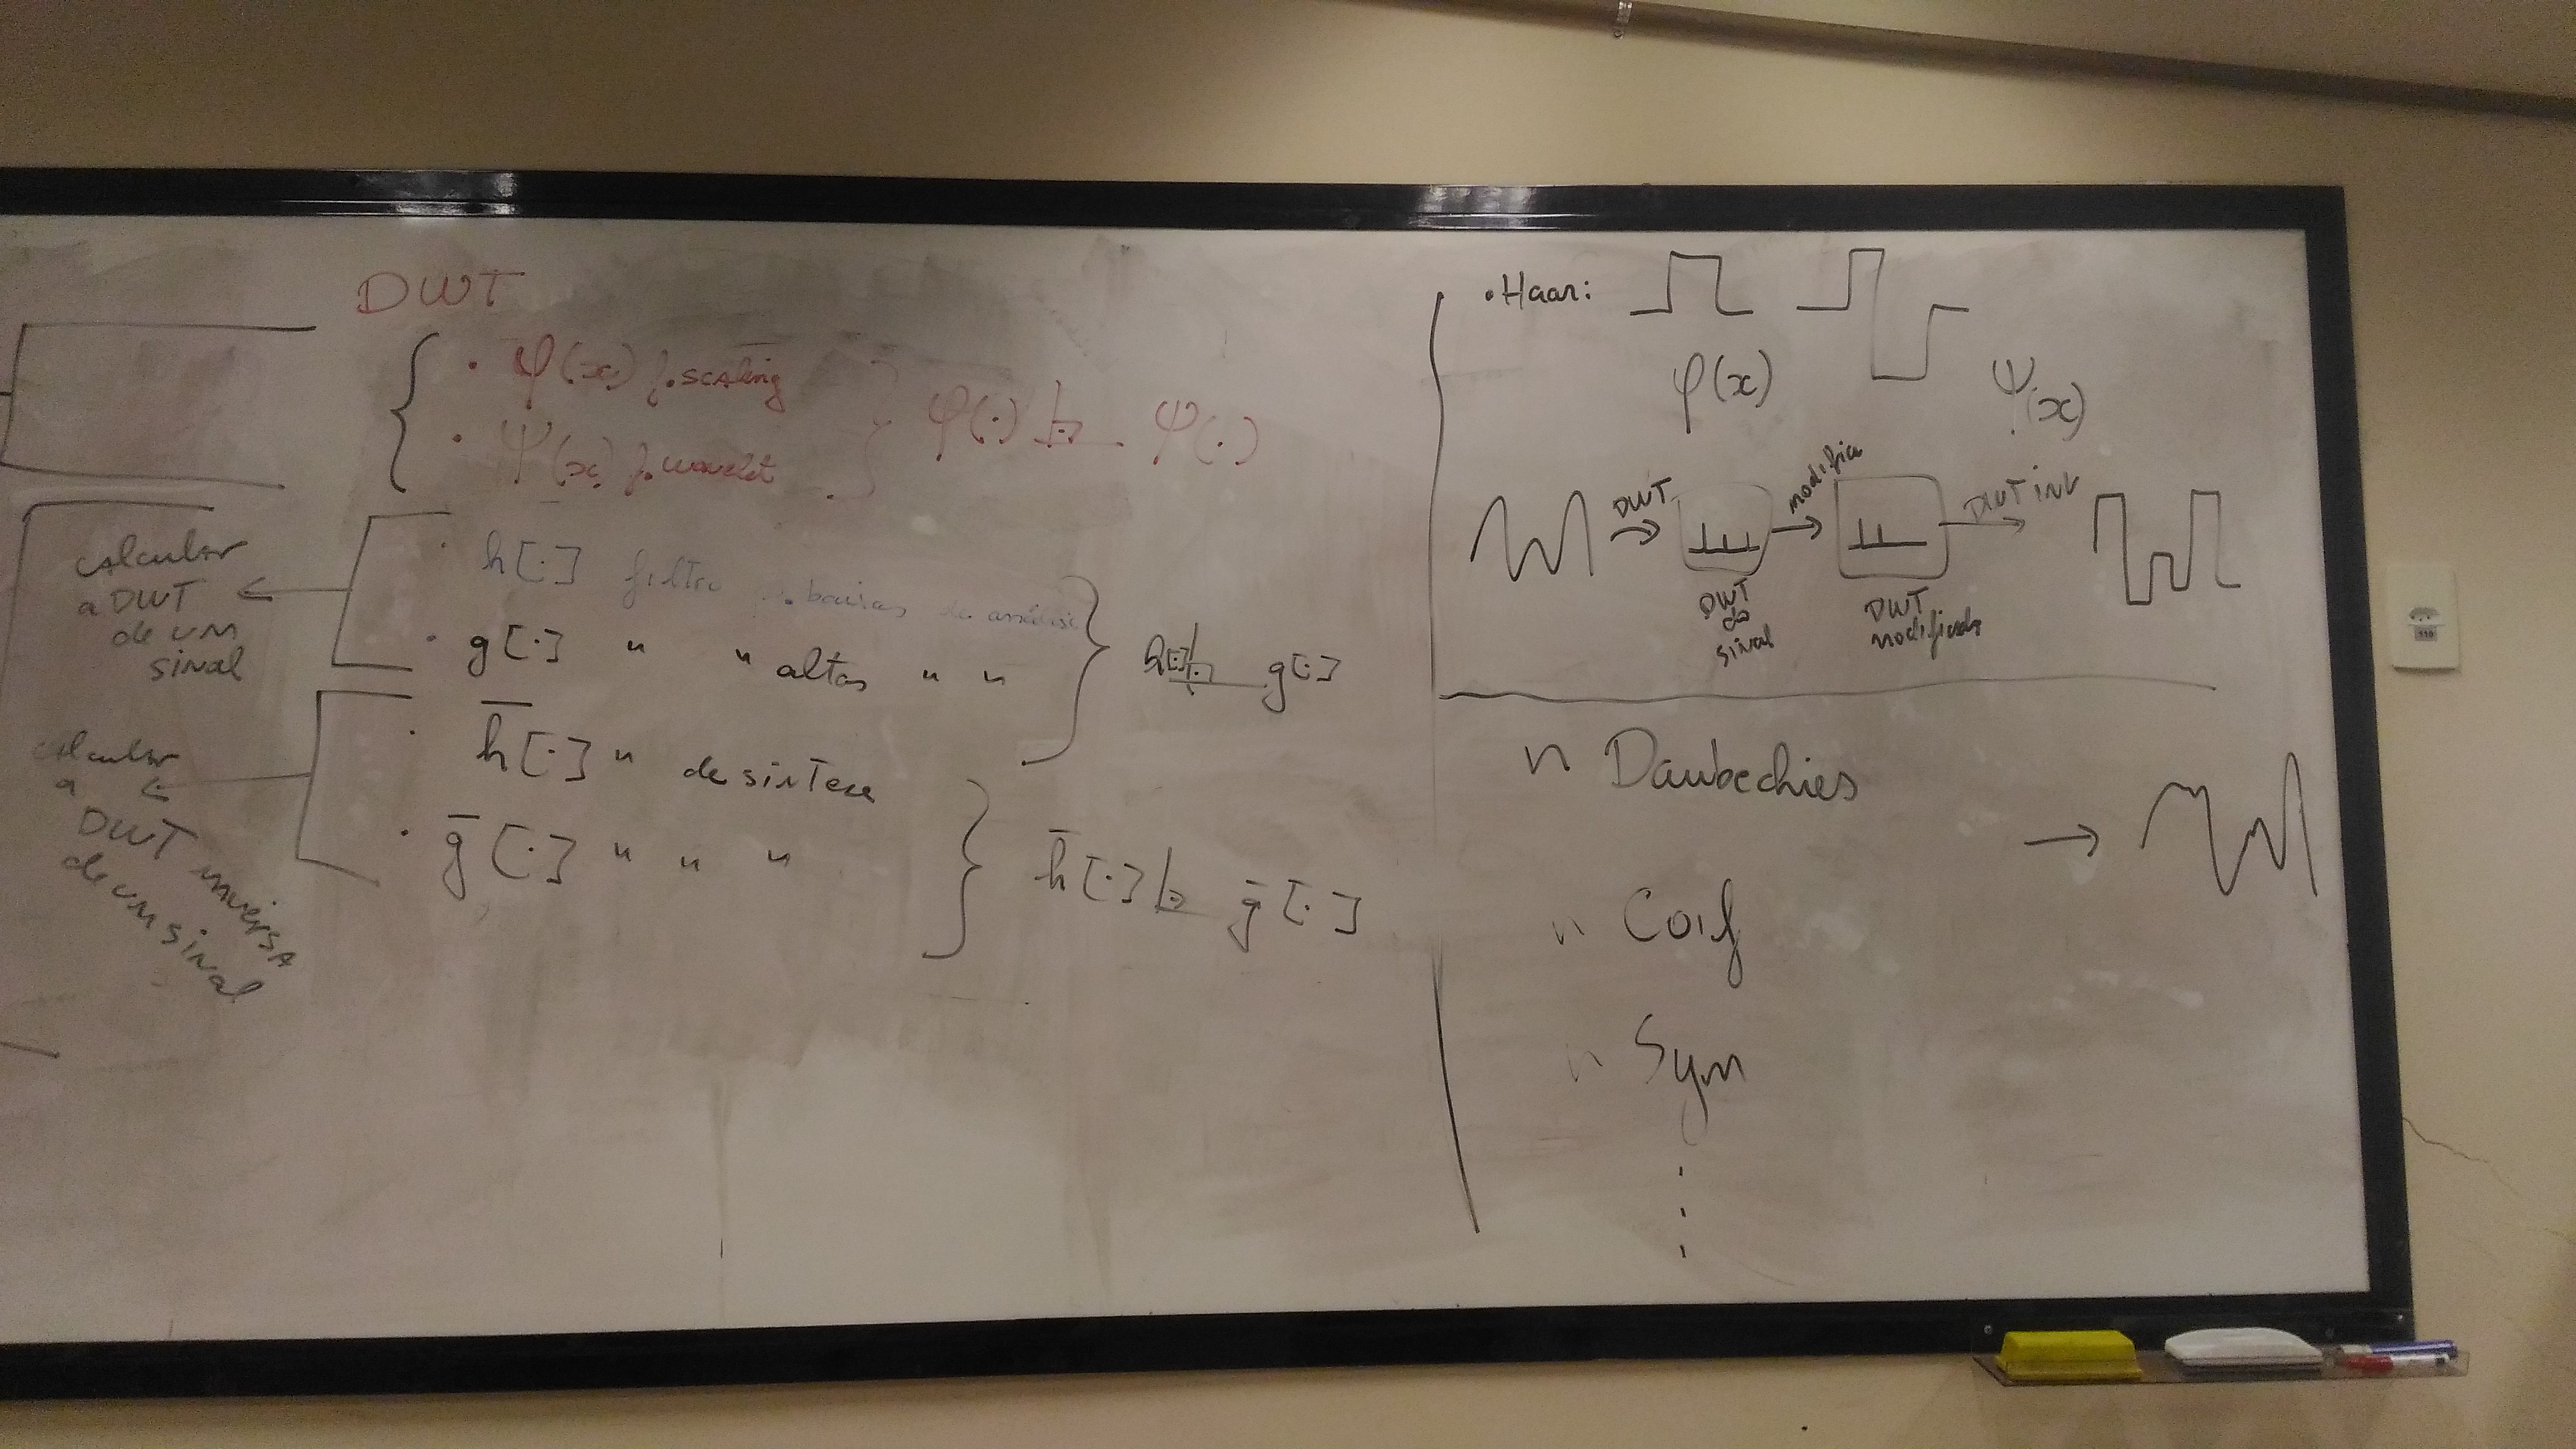 DWT
• φ(x) f. scaling
• ψ(x) f. wavelet
φ(·) ⊥ ψ(·)
calcular
a DWT
de um
sinal
• h[·] filtro p. baixas de análise
• g[·] " " altas " "
h[·] ⊥ g[·]
calcular
a
DWT inversa
de um sinal
• h̅[·] " de sintese
• g̅[·] " " "
h̅[·] ⊥ g̅[·]
• Haar:
φ(x)
ψ(x)
DWT
modifica
DWT inv
DWT
do
sinal
DWT
modificada
" Daubechies
" Coif
" Sym